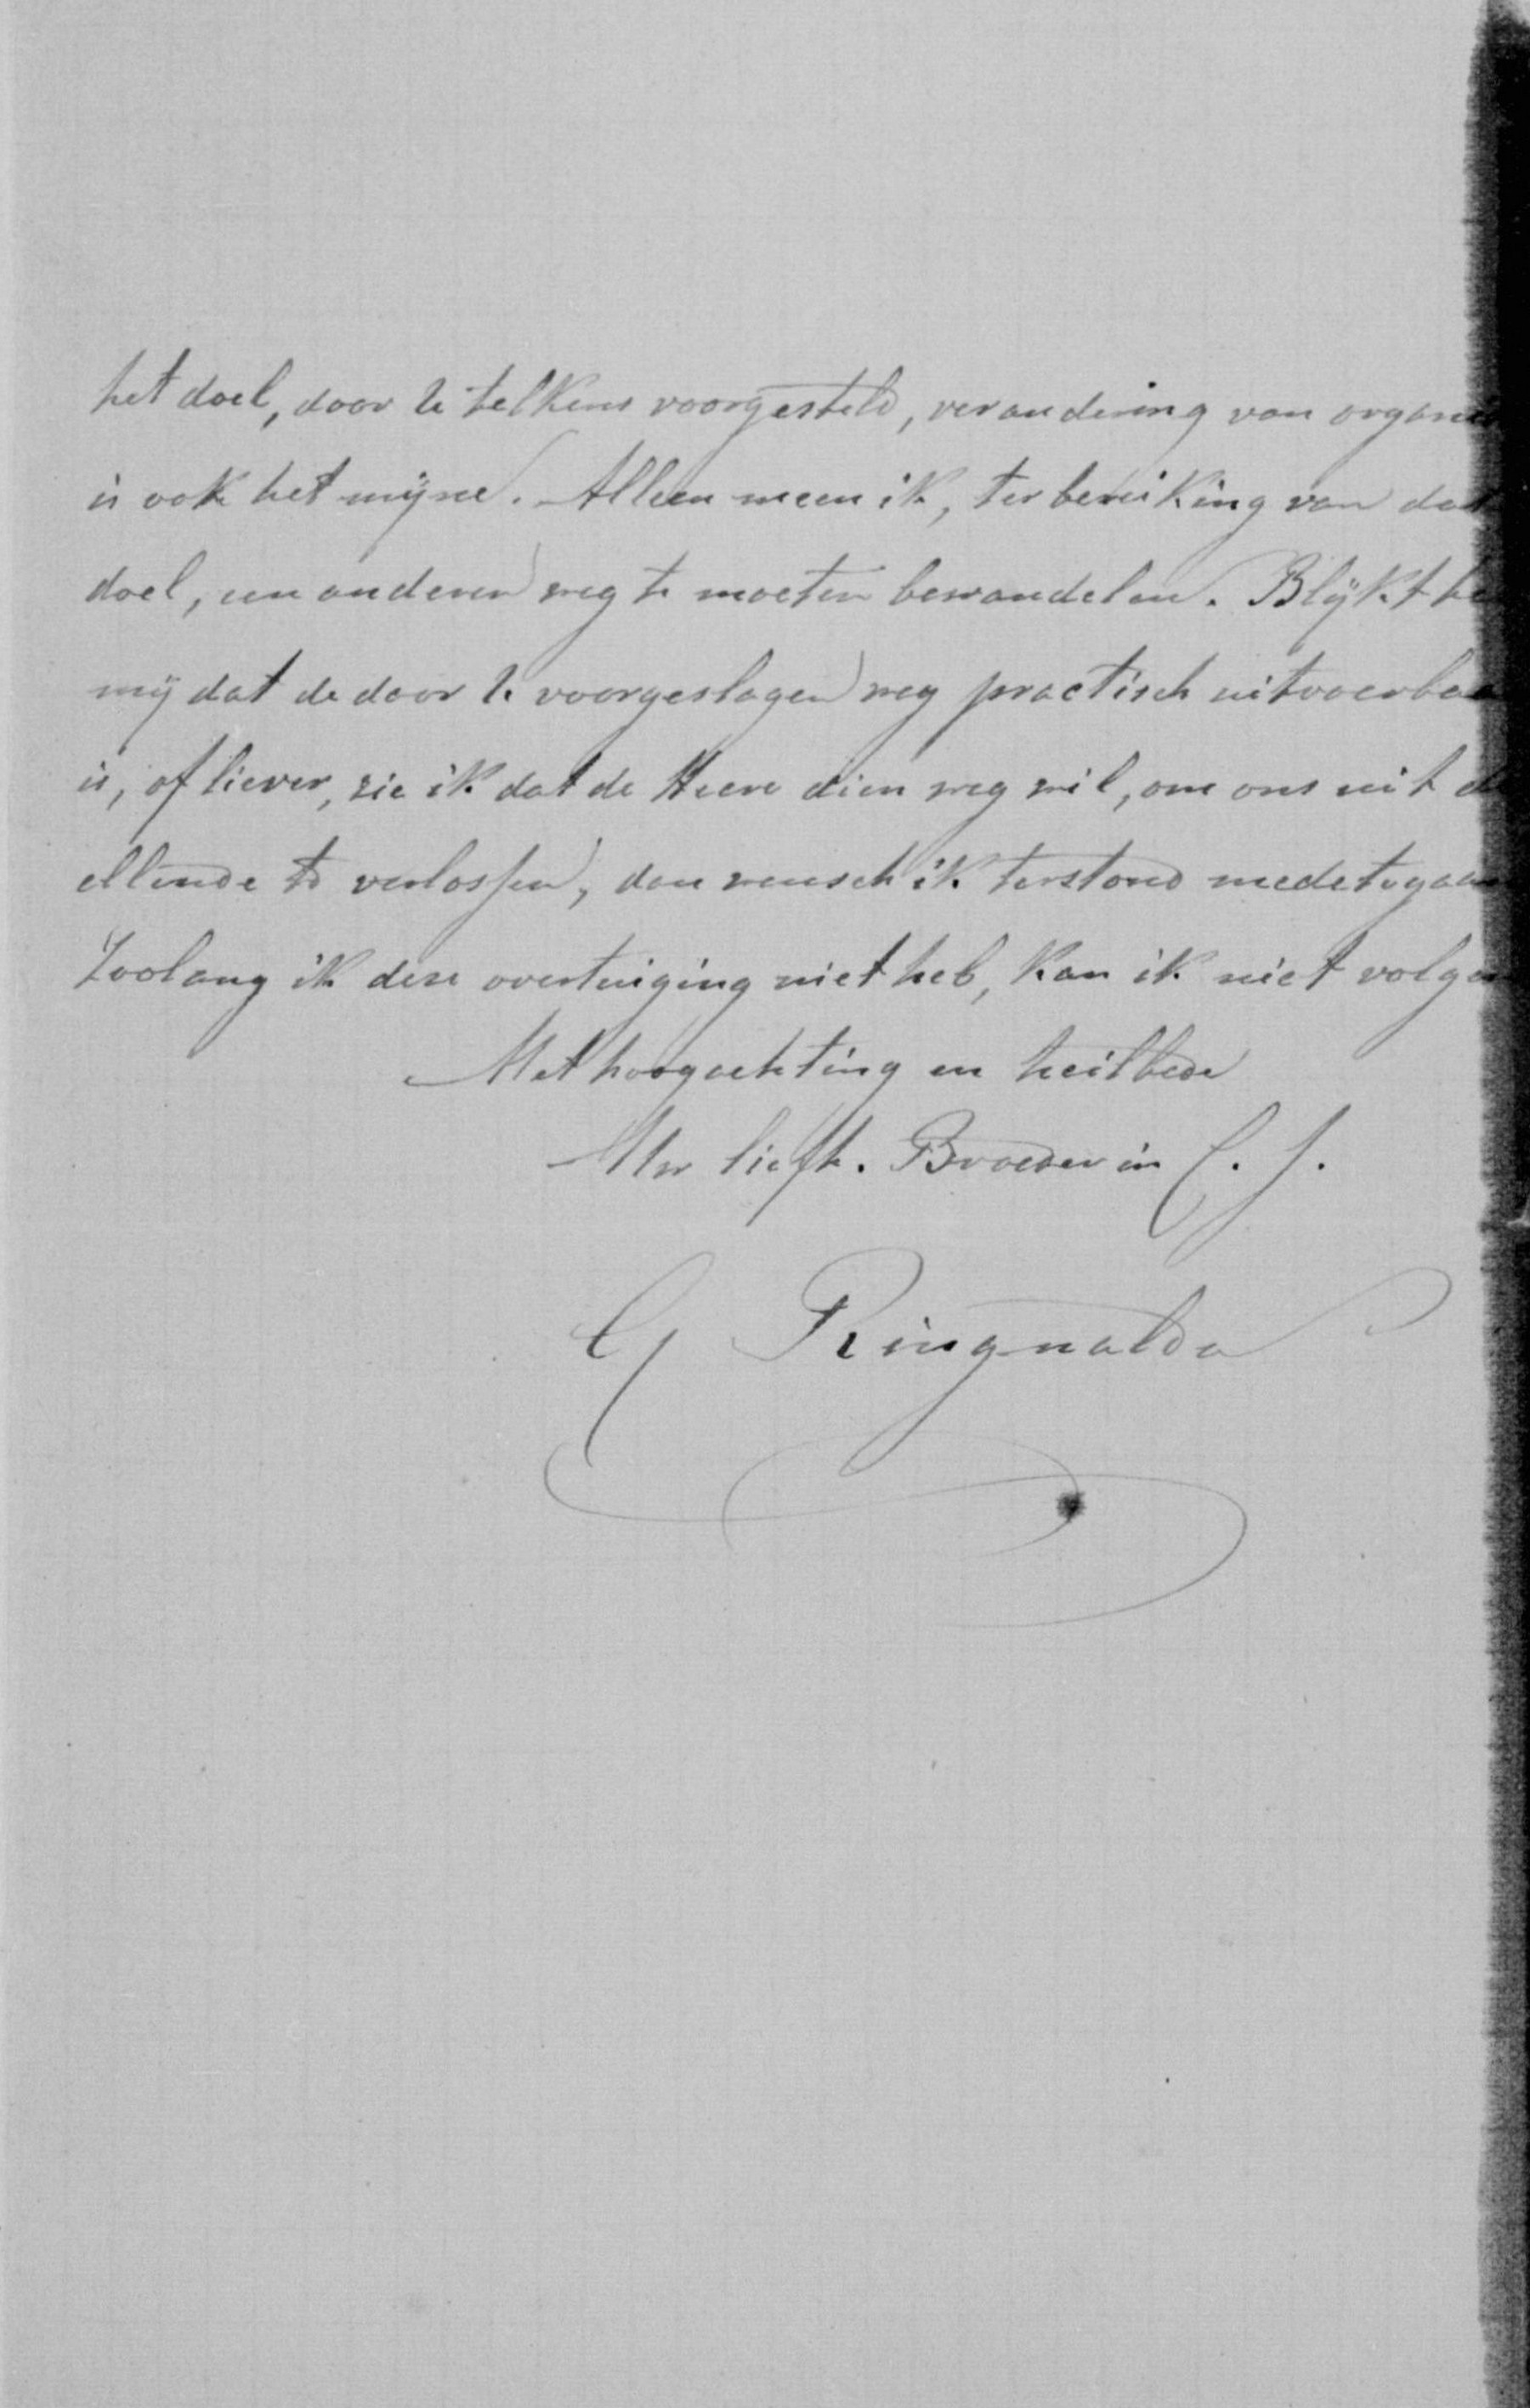 het doel, door U telkens voorgesteld, verandering van organis
is ook het mijne. Alleen meen ik, ter bereiking van dat
doel, een anderen weg te moeten bewandelen. Blijkt he
mij dat de door U voorgeslagen weg practisch uitvoerbaa
is, of liever, zie ik dat de Heere dien weg wil, om ons uit de
ellende te verlossen, dan wensch ik terstond medetegaan
Zoolang ik deze overtuiging niet heb, kan ik niet volgen
Met hoogachting en heilbede
Uw liefh. Broeder in C. J.
C Ringnalda